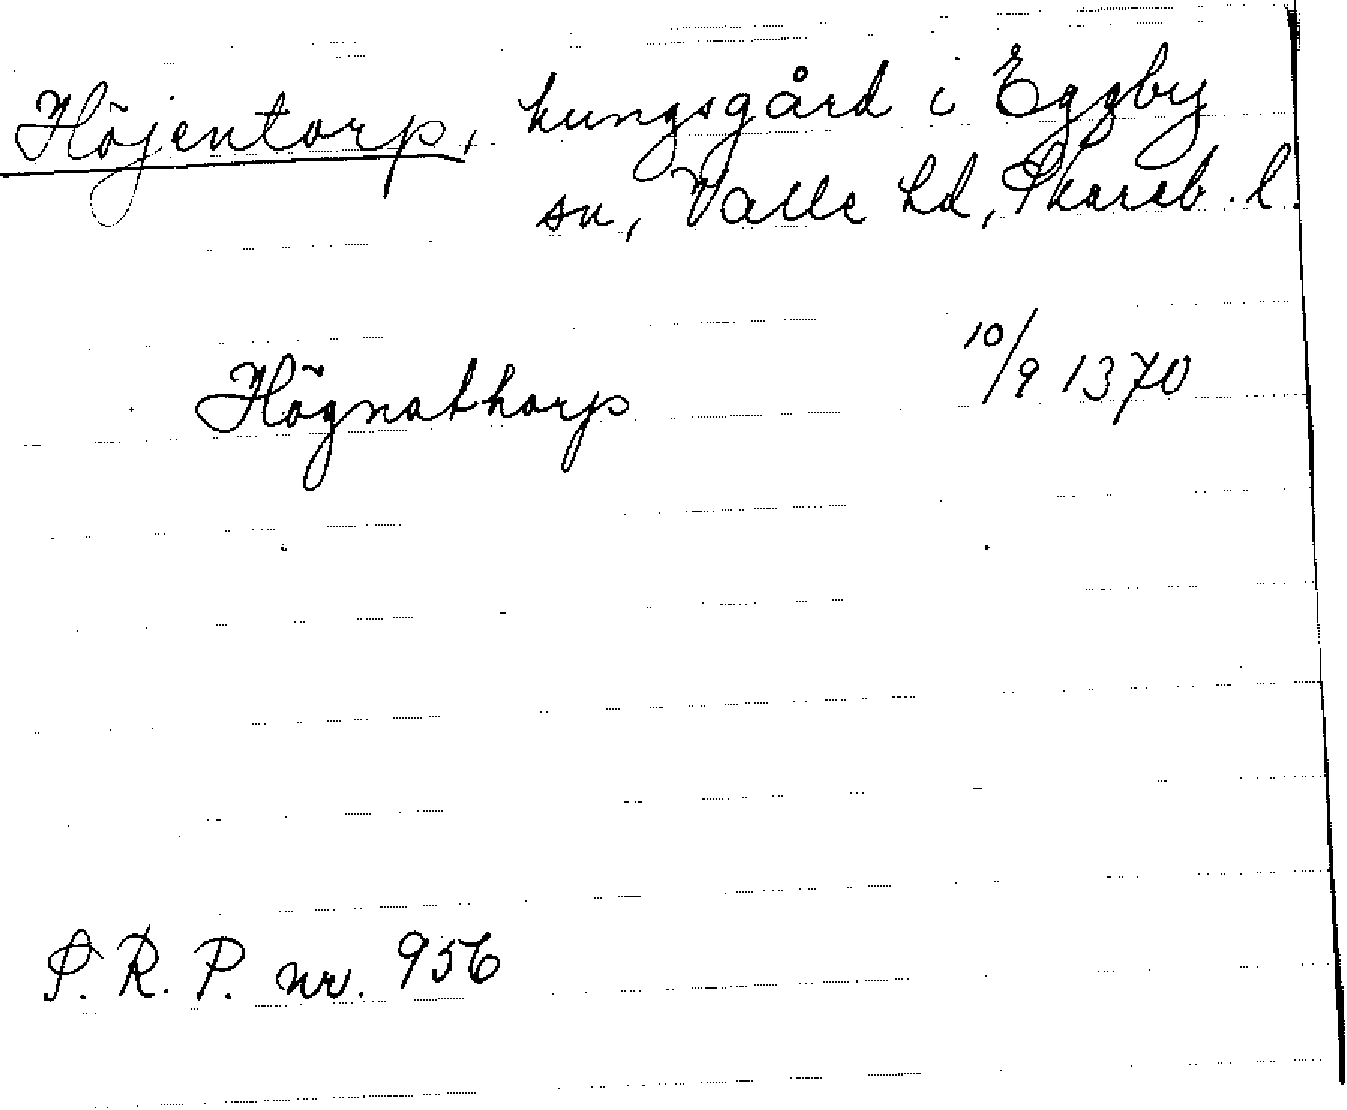 Höjentorp, kungsgård i Eggby
sn, Valle hd, Skarab. l.
Högnathorp 10/9 1370
S. R. P. nr. 956